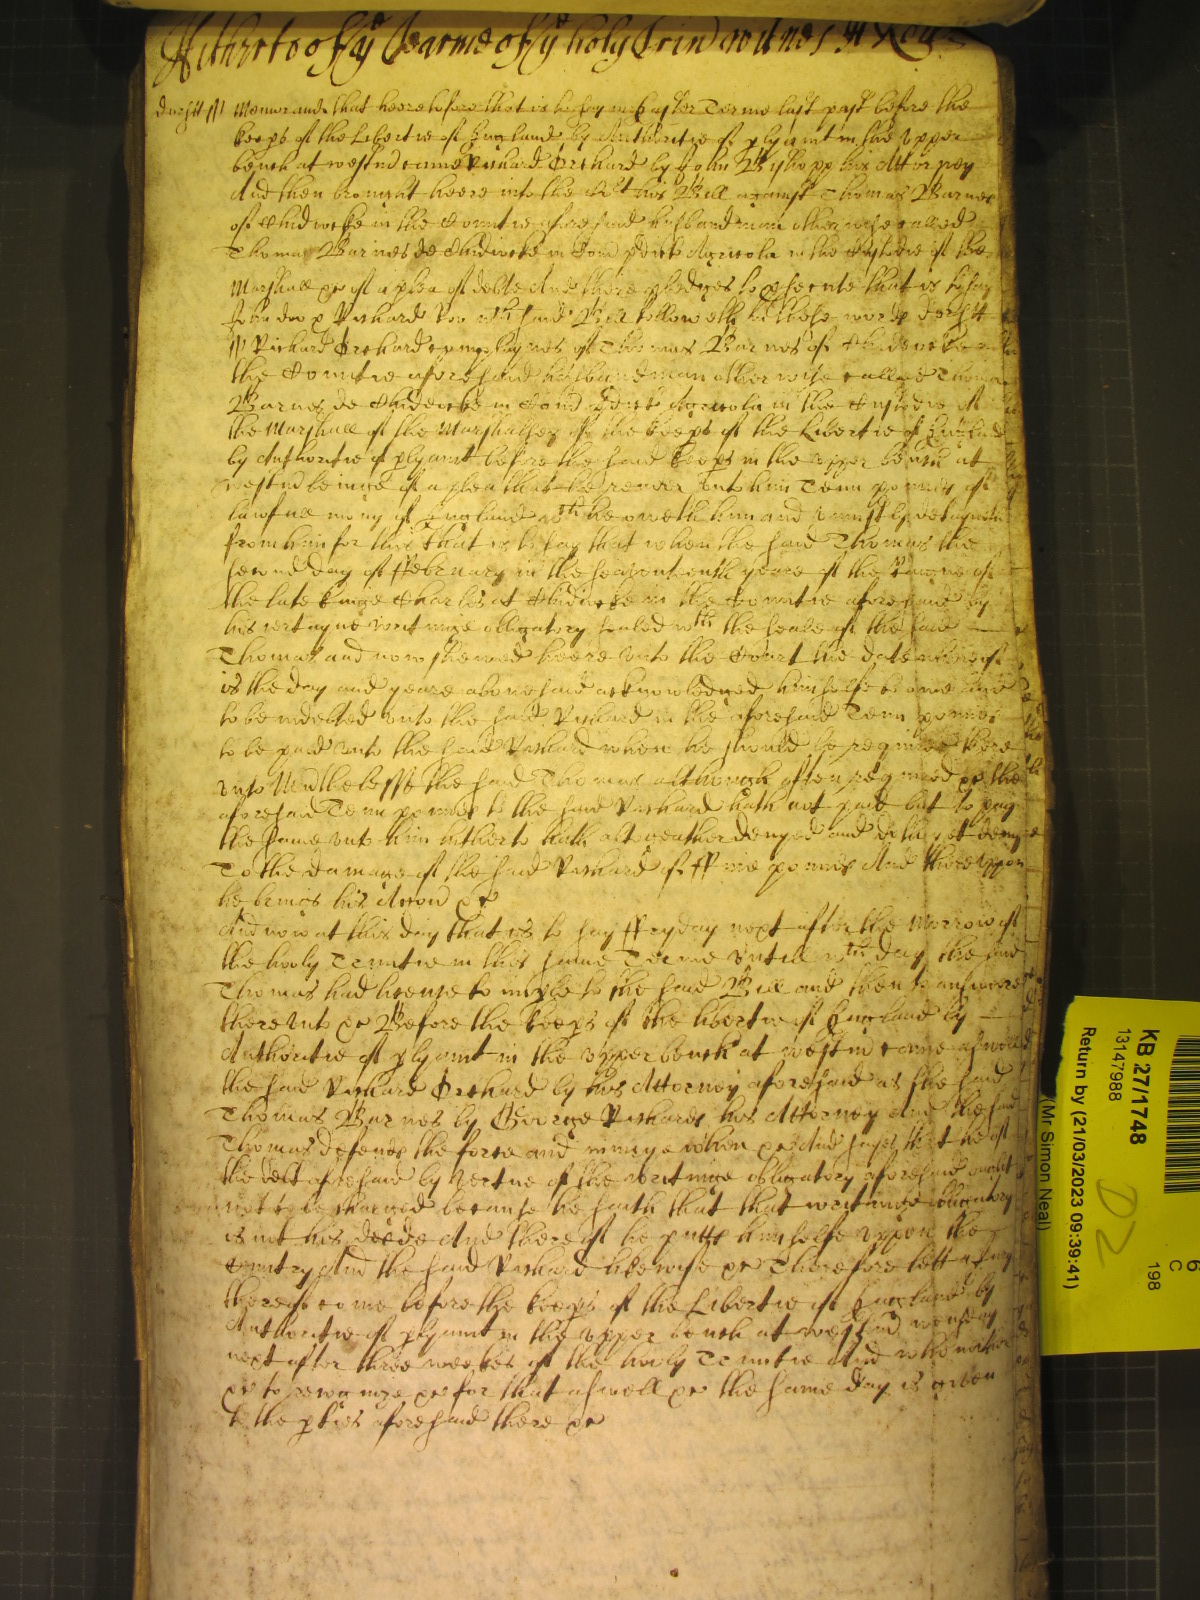 Hitherto of ye Tearme of ye holy Trin witnes H Roll
Dorsett // Memorand that heeretofore that is to say in Easter Terme last past before the
keeps of the Libertie of England by Authoritie of plyamt in the Upper
bench at westm came Richard Orchard by John Byshopp his Attorney
And then brought heere into the Cort his Bill against Thomas Barnes
of Chidiocke in the Countie aforesaid husbandman otherwise called
Thomas Barnes de Chidiocke in Com pdict Agricola in the Custodie of the
Marshall &c of a plea of debte And there pledges to psecute that is to say
John doe & Richard Roo wch said Bill followeth in these words Dorsett
// Richard Orchard complaynes of Thomas Barnes of Chideocke in
the Countie aforesaid husbandman otherwise called Thomas
Barnes de Chideocke in Com pdict Agricola in the Custodie of
the Marshall of the Marshalsey of the keeps of the Libertie of England
by Authoritie of plyamt before the said keeps in the upper bench at
westm beinge of a plea that he render unto him Tenn pounds of
lawfull mony of England wch he oweth him and uniustly detayneth
from him for this that is to say that when the said Thomas the
second day of February in the seaventeenth yeare of the Raigne of
the late Kinge Charles at Chidiocke in the Countie aforesaid by
his certayne writinge obligatory sealed wth the seale of the said
Thomas and now shewed heere unto the Court the date whereof
is the day and yeare abovesaid acknowledged himselfe to
to be indebted unto the said Richard in the aforesaid Tenn pounds
to be paid unto the said Richard when he should be required there
unto Nevthelesse the said Thomas although often required &c the
aforesaid Tenn pounds to the said Richard hath not paid but to pay
the same unto him hitherto hath altogeather denyed and doth yet deny
To the damage of the said Richard of Five pounds And thereuppon
he brings his Accon &c
And now at this day that is to say ffryday next after the Morrow of
the holy Trinitie in this same Terme untill wch day the said
Thomas had licence to imple to the said Bill and then to answere
thereunto &c Before the keeps of the libertie of England by
Authoritie of plyamt in the upper bench at westm came aswell
the said Richard Orchard by his Attorney aforesaid as the said
Thomas Barnes by George Richards his Attorney And the said
Thomas defends the force and iniurye when &c And sayes that he of
the debt aforesaid by vertue of the writinge obligatory aforesaid ought
not to be charged because he saith that that writinge obligatory
is not his deede And thereof he putts himselfe uppon the
countryAnd the said Richard likewise &c Therefore lett a Jury
thereof come before the keeps of the Libertie of England by
Authoritie of plyamt in the upper bench at westm
next after three weekes of the holy Trinitie And who neither
&c to recognize &c for that aswell &c the same day is given
to the pties aforesaid there &c
KB 27/1748
13147988
Return by (21/03/2023 09:39:41)
(Mr Simon Neal)
D2
198
C
6